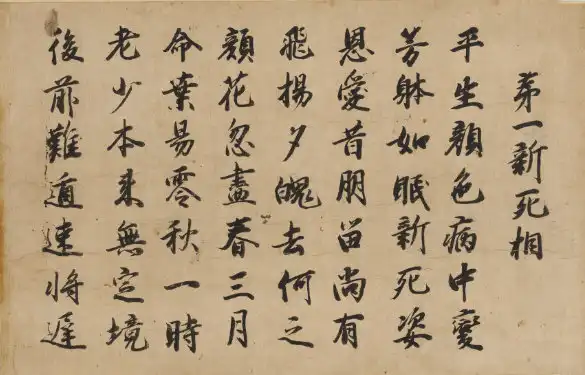 苐一新死相
平生顔色病中衰
芳躰如眠新死姿
恩愛昔朋留尚有
飛揚夕魄去何之
顔花忽盡春三月
命葉易零秋一時
老少本来無定境
後前難遁速将遲